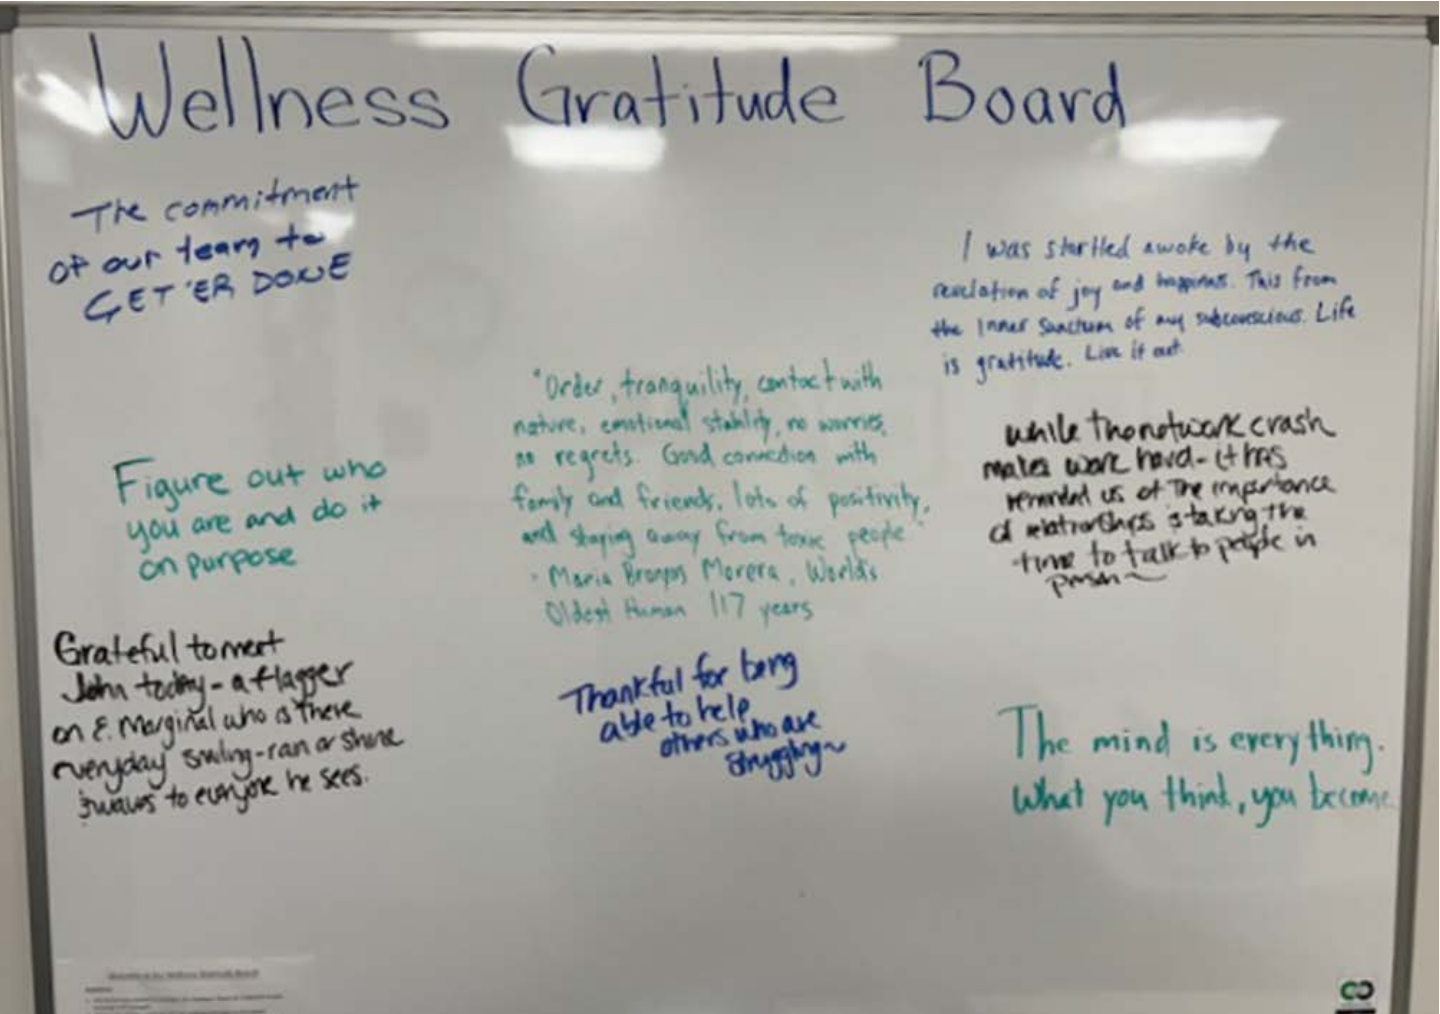 Wellness Gratitude Board
The commitment
of our team to
GET 'ER DONE
Figure out who
you are and do it
on purpose
Grateful to meet
John today - a flagger
on E. Marginal who is there
everyday smiling - rain or shine
& waves to everyone he sees.
"Order, tranquility, contact with
nature, emotional stability, no worries,
no regrets. Good connection with
family and friends, lots of positivity,
and staying away from toxic people."
- Maria Branyas Morera, World's
Oldest Human 117 years
Thankful for being
able to help
others who are
struggling~
I was startled awoke by the
revelation of joy and happiness. This from
the Inner Sanctum of my subconscious. Life
is gratitude. Live it out.
While the network crash
makes work hard - it has
reminded us of the importance
of relationships & taking the
time to talk to people in
person~
The mind is everything.
What you think, you become.